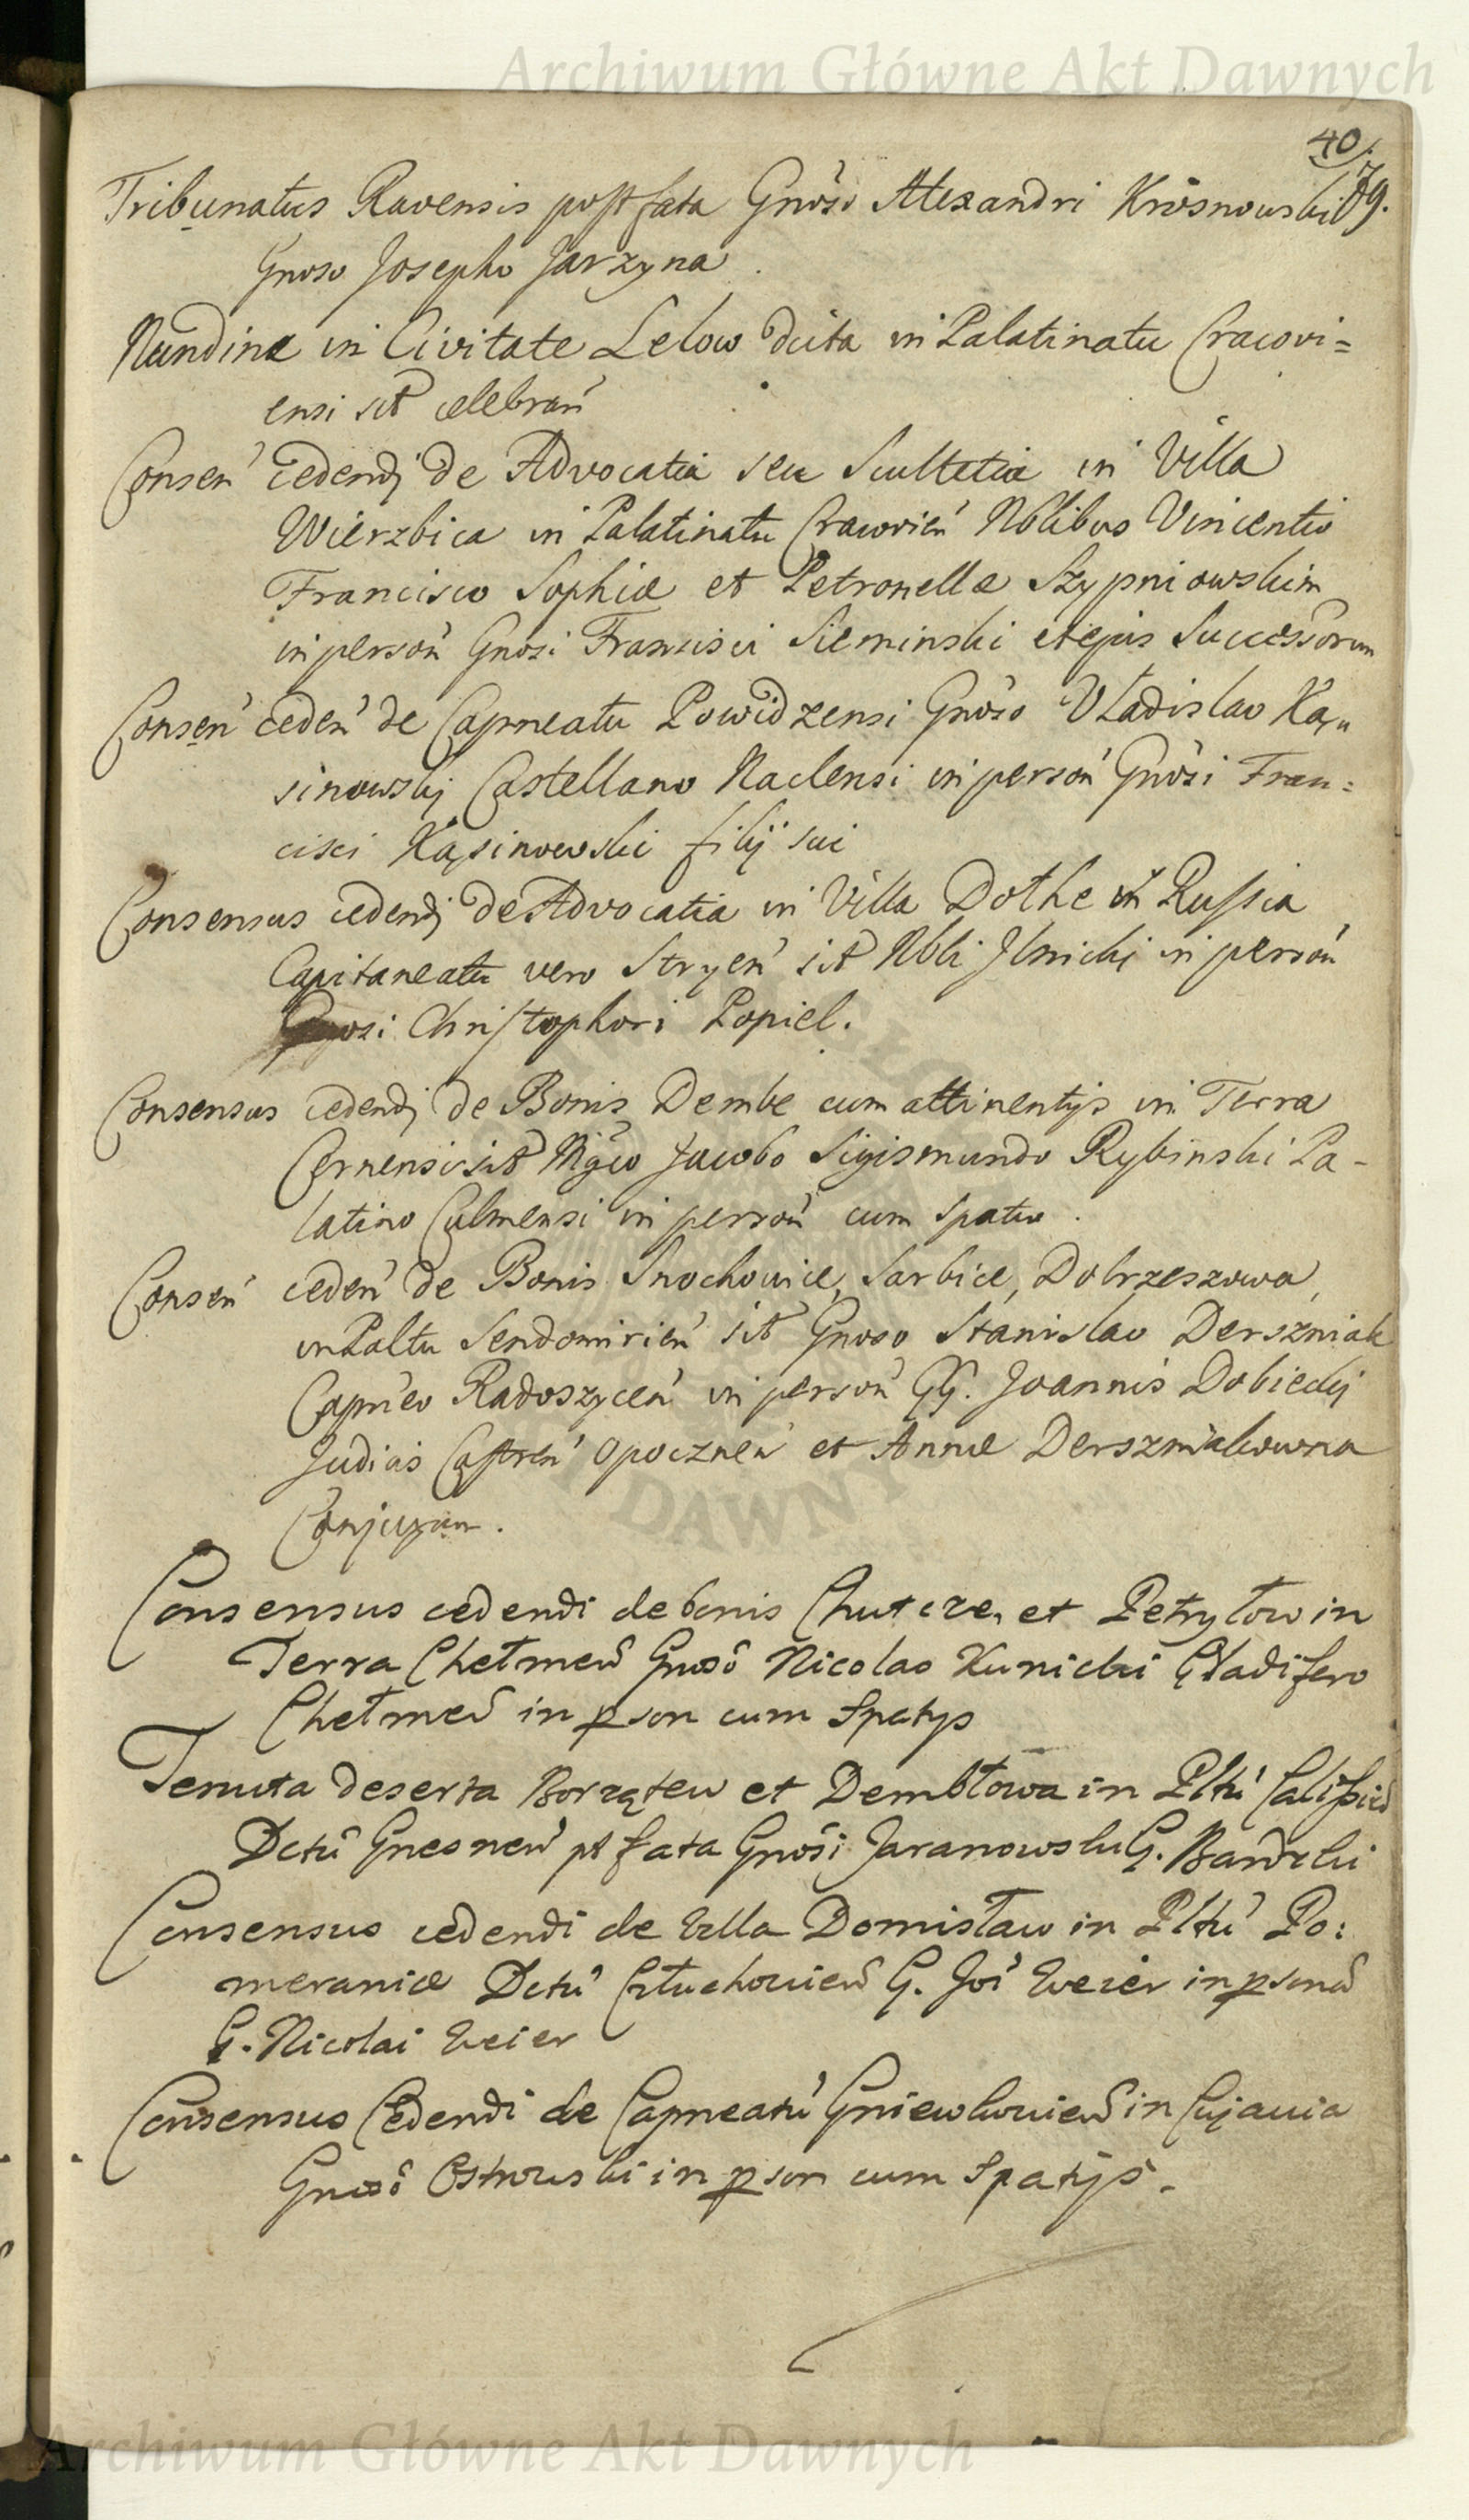 Archiwum Główne Akt Dawnych
40.
79.
Tribunatus Ravensis post fata Gnõso Alexandri Krosnowski
Gnoso Josepho Jarzyna.
Nundinæ in Civitate Lelow dicta in Palatinatu Cracovi=
ensi sit celebran̄
Consen̄ cedendj de Advocatia seu Scultetia in Villa
Wierzbica in Palatinatu Cracovien̄ Nblibus Vincentio
Francisco Sophiæ et Petronellæ Szypniowskim
in person̄ Gnosi Francisci Sieminski et ejus Successorum
Consen̄ ceden̄ de Capneatu Powidzensi Gnõso Vladislao Ką
sinowskj Castellano Naclensi in person̄ Gnõsi Fran=
cisci Kąsinowski filij sui
Consensus cedendj de Advocatia in Villa Dołhe in Russia
Capitaneatu vero Stryen̄ sit Nbli Jlnickj in person̄
Gnosi Christophori Popiel.
Consensus cedendj de Bonis Dembe cum attinentijs in Terra
Cernensi sit Mgco Jacobo Sigismundo Rybinski Pa-
latino Culmensi in person̄ cum Spatio.
Consen̄ ceden̄ de Bonis Snochowice, Sarbice, Dobrzeszowa,
in Paltu Sendomirien̄ sit Gnoso Stanislao Derszniak
Capneo Radoszycen̄ in person̄ GG. Joannis Dobieckj
Judicis Castren̄ Opocznen̄ et Annæ Derszniakowna
Conjugum.
Consensus cedendi de bonis Chutcze, et Petryłow in
Terra Chełmen̄ Gnosõ Nicolao Kunicki Gladifero
Chełmen̄ in pson cum Spatijs
Tenuta deserta Borzątew et Dembłowa in Pltu Calissien̄
Dctu Gnesnen̄ pt fata Gnosi Jaranowski G. Bardzki
Consensus cedendi de Villa Domisław in Pltu Po:
meraniæ Dctu Człuchovien̄ G. Joi Weier in pson̄
G. Nicolai Weier
Consensus Cedendi de Capneatu Gniewkovien̄ in Cujavia
Gnosõ Ostrowski in pson cum Spatijs.
Archiwum Główne Akt Dawnych